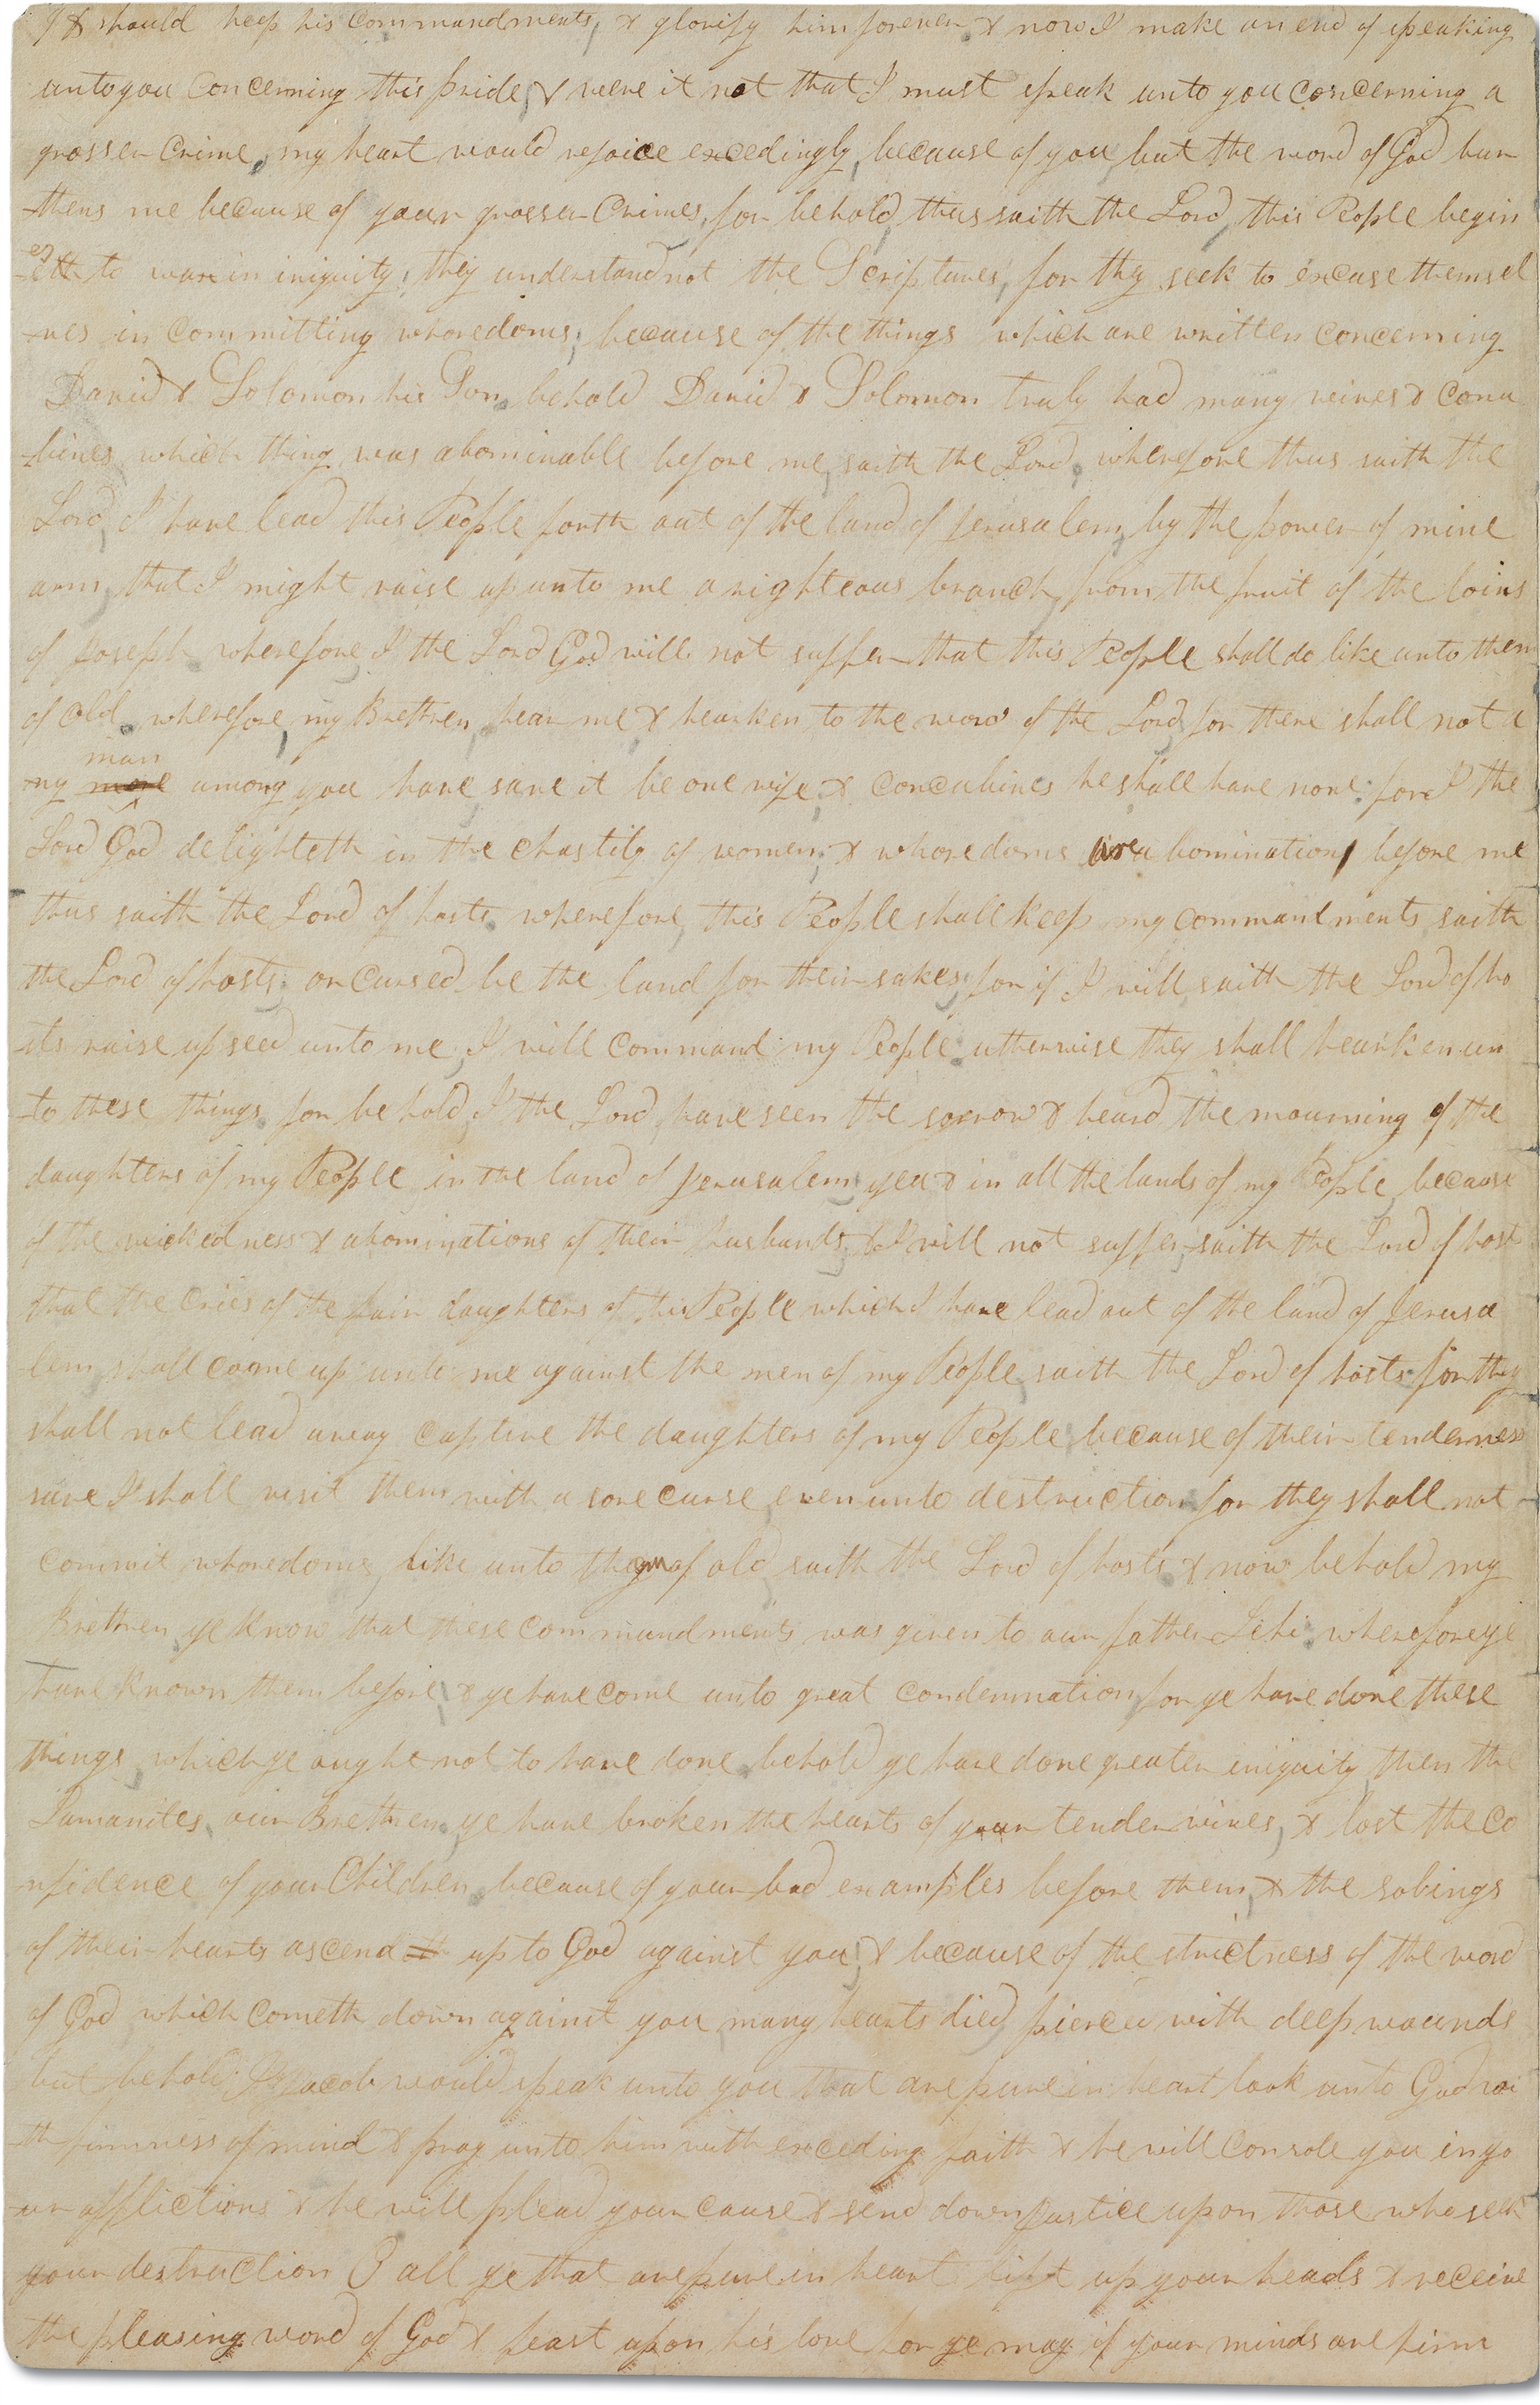 & should keep his commandments, & glorify him forever. & now I make an end of speaking
unto you concerning this pride, & were it not that I must speak unto you concerning a
grosser crime, my heart would rejoice excedingly, because of you, but the word of God bur
-thens me because of your grosser crimes, for behold, thus saith the Lord, this People begin
-eth to wax in iniquity; they understand not the Scriptures, for they seek to excuse themsel
-ves in committing whoredoms, because of the things which are written concerning
David & Solomon his Son. behold David & Solomon truly had many wives & conu
-bines, which thing was abominable before me, saith the Lord, wherefore thus saith the
Lord, I have lead this People forth out of the land of Jerusalem, by the power of mine
arm, that I might raise up unto me a righteous branch, from the fruit of the loins
of Joseph wherefore I the Lord God will not suffer that this People shall do like unto them
of old. wherefore, my Brethren, hear me & hearken to the word of the Lord, for there shall not a
-ny more man among you have save it be one wife; & concubines he shall have none: for I the
Lord God delighteth in the chastity of women; & whoredoms are abomination before me
thus saith the Lord of hosts. wherefore, this People shall keep my commandments, saith
the Lord of hosts; or cursed be the land for their sakes; for if I will, saith the Lord of ho
-sts raise up seed unto me, I will command my People. utherwise they shall hearken un
-to these things. for behold, I the Lord, have seen the sorrow & heard the mourning of the
daughters of my People in the land of Jerusalem, yea & in all the lands of my People, because
of the wickedness & abominations of their husbands, & I will not suffer, saith the Lord of host
that the cries of the fair daughters of this People which I have lead out of the land of Jerusa
lem, shall coome up unto me against the men of my People, saith the Lord of hosts. for they
shall not lead away captive the daughters of my People, because of their tenderness
save I shall visit them with a sore curse, even unto destruction for they shall not
commit whoredoms, like unto them of old, saith the Lord of hosts. & now behold my
Brethren, ye know that these commandments was given to our father Lehi. wherefore ye
have known them before, & ye have come unto great condemnation, for ye have done these
things, which ye ought not to have done, behold ye have done greater iniquity, then the
Lamanites, our Brethren. ye have broken the hearts of your tender wives, & lost the co
-nfidence of your Children, because of your bad examples before them, & the sobings
of their hearts ascend up to God against you, & because of the strictness of the word
of God, which cometh down against you, many hearts died, pierced with deep wounds
but behold, I Jacob would speak unto you that are pure in heart look unto God wi
-th firmness of mind & pray unto him with exceding faith & he will console you in yo
-ur afflictions & he will plead your cause & send down justice upon those who seek
your destruction O all ye that are pure in heart lift up your heads & receive
the pleasing word of God & feast upon his love for ye may if your minds are firm